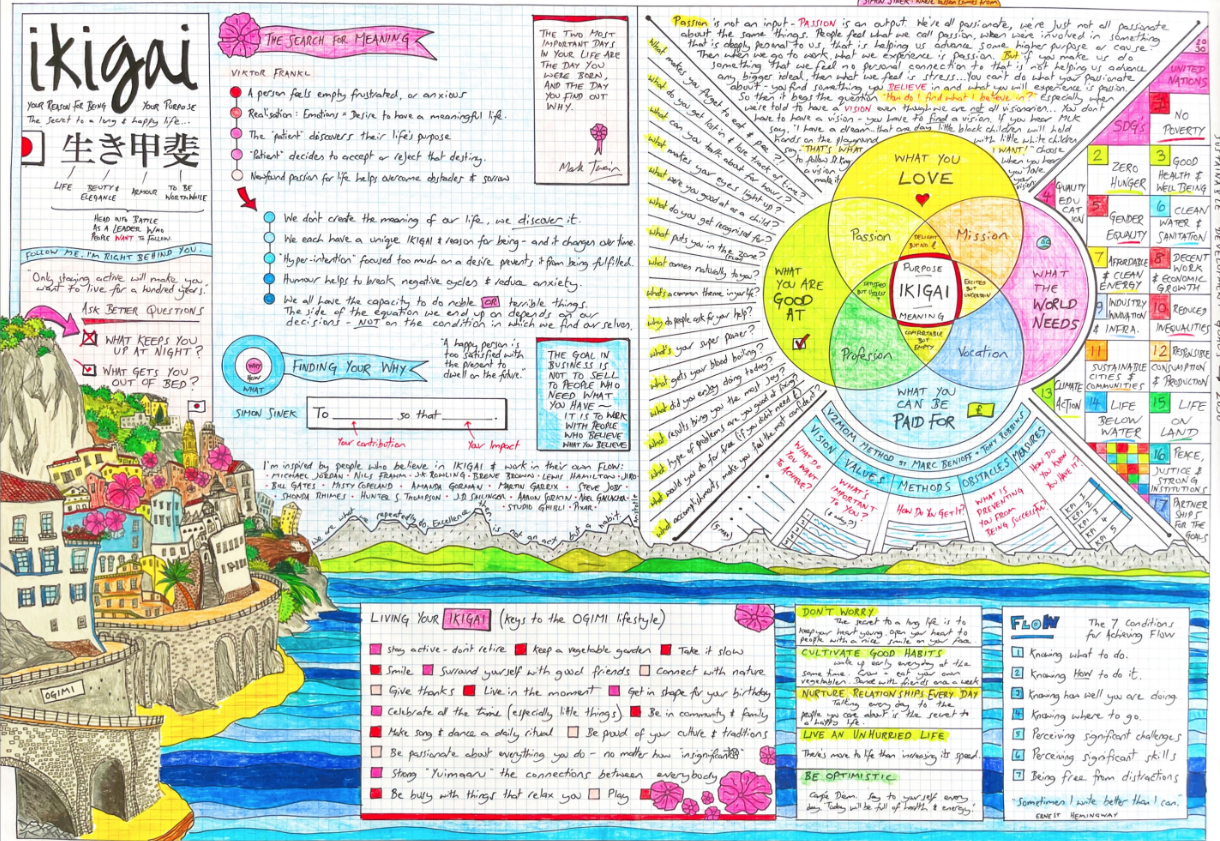 ikigai
YOUR REASON FOR BEING YOUR PURPOSE
The secret to a long & happy life...
生き甲斐
LIFE
BEUTY &
ELEGANCE
ARMOUR
TO BE
WORTHWHILE
HEAD INTO BATTLE
AS A LEADER WHO
PEOPLE WANT TO FOLLOW
FOLLOW ME, I'M RIGHT BEHIND YOU.
"Only staying active will make you
want to live for a hundred years."
ASK BETTER QUESTIONS
WHAT KEEPS YOU
UP AT NIGHT?
WHAT GETS YOU
OUT OF BED?
OGIMI
THE SEARCH FOR MEANING
VIKTOR FRANKL
A person feels empty frustrated, or anxious
Realisation: Emotions = Desire to have a meaningful life.
The 'patient' discovers their life's purpose
"Patient" decides to accept or reject that destiny.
Newfound passion for life helps overcome obstacles & sorrow
We don't create the meaning of our life, we discover it.
We each have a unique IKIGAI & reason for being - and it changes over time.
"Hyper-intention" focused too much on a desire prevents it from being fulfilled.
Humour helps to break negative cycles & reduce anxiety.
We all have the capacity to do noble OR terrible things.
The side of the equation we end up on depends on our
decisions - NOT on the condition in which we find ourselves.
THE TWO MOST
IMPORTANT DAYS
IN YOUR LIFE ARE
THE DAY YOU
WERE BORN,
AND THE DAY
YOU FIND OUT
WHY.
Mark Twain
WHY
HOW
WHAT
FINDING YOUR WHY
"A happy person is
too satisfied with
the present to
dwell on the future."
SIMON SINEK
To so that .
Your contribution
Your Impact
THE GOAL IN
BUSINESS IS
NOT TO SELL
TO PEOPLE WHO
NEED WHAT
YOU HAVE ~
IT IS TO WORK
WITH PEOPLE
WHO BELIEVE
WHAT YOU BELIEVE
I'm inspired by people who believe in IKIGAI & work in their own FLOW:
• MICHAEL JORDAN • NILS FRAHM • JK ROWLING • BRENE BROWN • LEWIS HAMILTON • JIRO
• BILL GATES • MISTY COPELAND • AMANDA GORMAN • MARTIN GARRIX • STEVE JOBS •
• SHONDA RHIMES • HUNTER S THOMPSON • J.D SALINGER • AARON SORKIN •
• STUDIO GHIBLI • PIXAR •
we are what repeatedly do. Excellence then is not an act but a habit.
Passion is not an input - PASSION is an output. We're all passionate, we're just not all passionate
about the same things. People feel what we call passion, when we're involved in something
that is deeply personal to us, that is helping us advance some higher purpose or cause?
Then when we go to work, what we experience is passion. But if you make us do
something that we feel no personal connection to that is not helping us advance
any bigger ideal, then what we feel is stress... You can't do what your passionate
about - you find something you BELIEVE in and what you will experience is passion.
So then it begs the question "How do I find what I believe in?" Especially when
you're told to have a VISION even though we are not all visionaries... You don't
have to have a vision - you have to find a vision. If you hear MLK
say, "I have a dream... that one day little black children will hold
hands on the playground with little white children
What makes you forget to eat & pee?
What do you get lost in & lose track of time?
What can you talk about for hours?
What makes your eyes light up?
What were you good at as a child?
What do you get recognised for?
What puts you in the zone?
What comes naturally to you?
What's a common theme in your life?
Why do people ask for your help?
What's your super power?
What gets your blood boiling?
What did you enjoy doing today?
What results bring you the most joy?
What type of problems are you good at fixing?
What would you do for free (if you didn't need £)
What accomplishments make you feel the most confident?
WHAT YOU
LOVE
Passion
Mission
DELIGHT
BUT NO £
WHAT
YOU ARE
GOOD
AT
PURPOSE
IKIGAI
MEANING
SATISFIED
BUT USELESS
EXCITED
BUT UNCERTAIN
COMFORTABLE
BUT
EMPTY
WHAT
THE
WORLD
NEEDS
Profession
Vocation
WHAT YOU
CAN BE
PAID FOR
£
V2MOM METHOD BY MARC BENIOFF + TONY ROBBINS
VISION VALUES METHODS OBSTACLES MEASURES
WHAT DO
YOU WANT
TO ACHIEVE?
WHAT'S
IMPORTANT
TO YOU?
HOW DO YOU GET IT?
WHAT IS
PREVENTING
YOU FROM
BEING SUCCESSFUL?
HOW DO
YOU KNOW
YOU HAVE IT?
KPI 1
KPI 2
KPI 3
KPI 4
KPI 5
2030
UNITED
NATIONS
SDG's
NO
POVERTY
2 ZERO
HUNGER
3 GOOD
HEALTH &
WELL BEING
4 QUALITY
EDUCATION
5 GENDER
EQUALITY
6 CLEAN
WATER &
SANITATION
7 AFFORDABLE
& CLEAN
ENERGY
8 DECENT
WORK
& ECONOMIC
GROWTH
9 INDUSTRY
INNOVATION
& INFRA.
10 REDUCED
INEQUALITIES
11 SUSTAINABLE
CITIES &
COMMUNITIES
12 RESPONSIBLE
CONSUMPTION
& PRODUCTION
13 CLIMATE
ACTION
14 LIFE
BELOW
WATER
15 LIFE
ON
LAND
16 PEACE,
JUSTICE &
STRONG
INSTITUTIONS
17 PARTNER
SHIPS
FOR THE
GOALS
LIVING YOUR IKIGAI (keys to the OGIMI lifestyle)
Stay active - don't retire Keep a vegetable garden Take it slow
Smile Surround yourself with good friends Connect with nature
Give thanks Live in the moment Get in shape for your birthday
Celebrate all the time (especially little things) Be in community & family
Make song & dance a daily ritual Be proud of your culture & traditions
Be passionate about everything you do - no matter how insignificant
Strong "Yuimaaru" the connections between everybody
Be busy with things that relax you Play
DON'T WORRY
The secret to a long life is to
keep your heart young. Open your heart to
people with a nice smile on your face.
CULTIVATE GOOD HABITS
wake up early everyday at the
same time. Grow & eat your own
vegetables. Dance with friends once a week
NURTURE RELATIONSHIPS EVERY DAY
Talking every day to the
people you care about is the secret to
a happy life.
LIVE AN UNHURRIED LIFE
There's more to life than increasing its speed.
BE OPTIMISTIC
Carpe Diem. Say to yourself every
day, 'Today will be full of health & energy!'
FLOW The 7 Conditions
for Achieving Flow
1 Knowing what to do.
2 Knowing How to do it.
3 Knowing how well you are doing
4 Knowing where to go.
5 Perceiving significant challenges
6 Perceiving significant skills
7 Being free from distractions
"Sometimes I write better than I can."
ERNEST HEMINGWAY